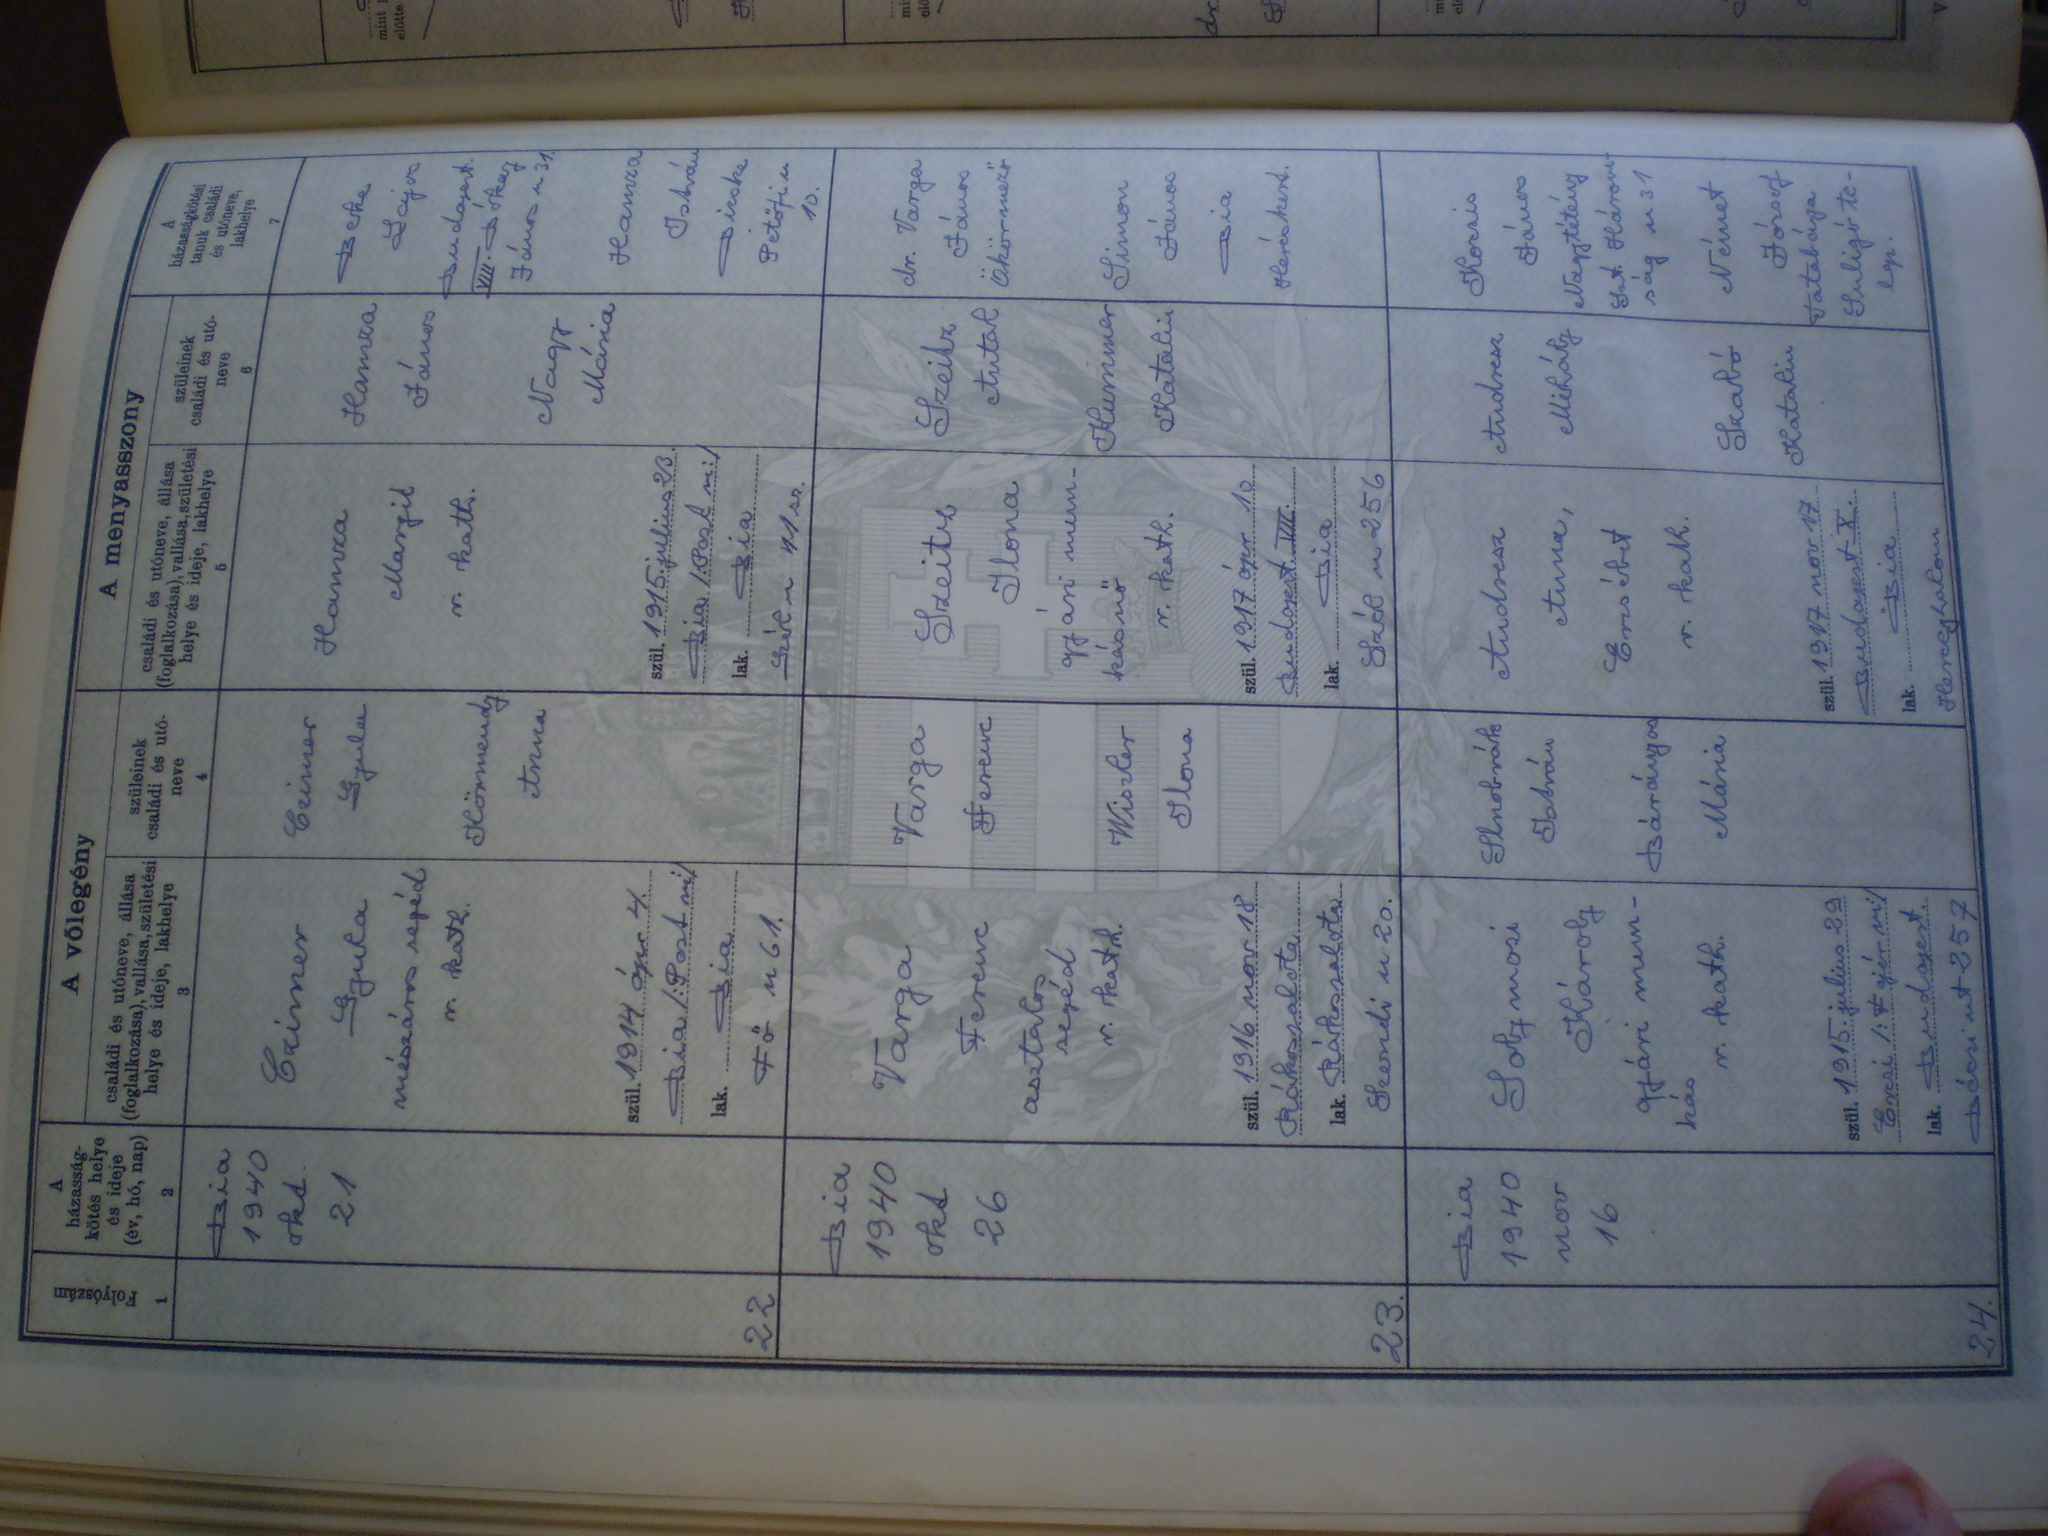 A vőlegény
A menyasszony
Folyószám
1
A
házasság-
kötés helye
és ideje
(év, hó, nap)
2
családi és utóneve, állása
(foglalkozása), vallása, születési
helye és ideje, lakhelye
3
szüleinek
családi és utó-
neve
4
családi és utóneve, állása
(foglalkozása), vallása, születési
helye és ideje, lakhelye
5
szüleinek
családi és utó-
neve
6
A
házasságkötési
tanuk családi
és utóneve,
lakhelye
7
22
Bia
1940
okt.
21
Czimer
Gyula
mészáros segéd
r. kath.
szül. 1914 ápr 4.
Bia /:Pest m:/
lak. Bia
Fő u 61.
Czimer
Gyula
Körmendy
Anna
Hamza
Margit
r. kath.
szül. 1915 julius 23.
Bia /:Pest m:/
lak. Bia
Szél u 41 sz.
Hamza
János
Nagy
Mária
Beke
Lajos
Budapest.
VIII.
János u 31.
Hamza
István
Bicske
Petőfi u
10.
23.
Bia
1940
okt
26
Varga
Ferenc
asztalos
segéd
r. kath.
szül. 1916 nov 18
Rákescsaba
lak. Rákoscsaba
Szendi u 20.
Varga
Ferenc
Wiszler
Ilona
Szeitz
Ilona
gyári mun-
kásnő
r. kath.
szül. 1917 ápr 10
Budapest VIII.
lak Bia
Szél u 256
Szeitz
Antal
Hummer
Katalin
dr. Varga
János
Ökörmező
Simon
János
Bia
24.
Bia
1940
nov
16
Solymosi
Károly
gyári mun-
kás
r. kath.
szül. 1915. julius 29
Ercsi /: Fejér m:/
lak. Budapest
Bécsi ut 257
István
Bárányos
Mária
Andresz
Anna,
Erzsébet
r. kath.
szül. 1917 nov 17
Budapest X.
lak. Bia
Herceghalom
Andresz
Mihály
Szabó
Katalin
Kocsis
János
Nagytétény
Szt. Három-
ság u 31
Német
József
Tatabánya
te-
lep.